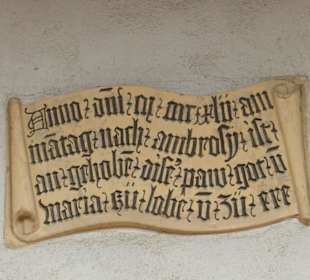 Anno dm̄i xlii am
māntag nach ambrosy ist
an gehobē dise paw got v̄
maria zů lobe v̄ zů ere